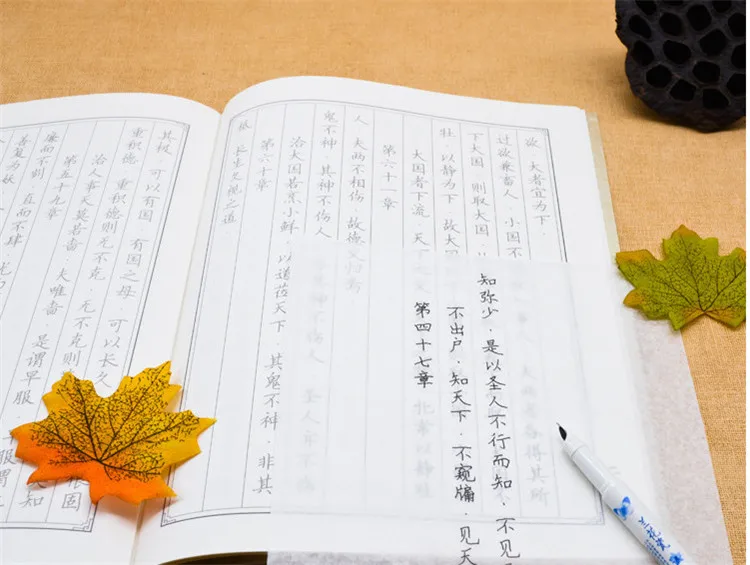 欲．大者宜为下．
过欲兼畜人．小国不
下大国．则取大国．
牡．以静为下．故大国
大国者下流．天下之
第六十一章
人．夫两不相伤．故德交归焉
鬼不神．其神不伤人．
治大国若烹小鲜．以道莅天下．其鬼不神．非其
第六十章
柢．长生久视之道．
其极．可以有国．有国之母．可以长久
重积德．重积德则无不克．无不克则
治人事天莫若啬．夫唯啬．是谓早服
第五十九章
廉而不刿．直而不肆．光而
善复为妖
知弥少．是以圣人不行而知．不见
不出户．知天下．不窥牖．见天
第四十七章